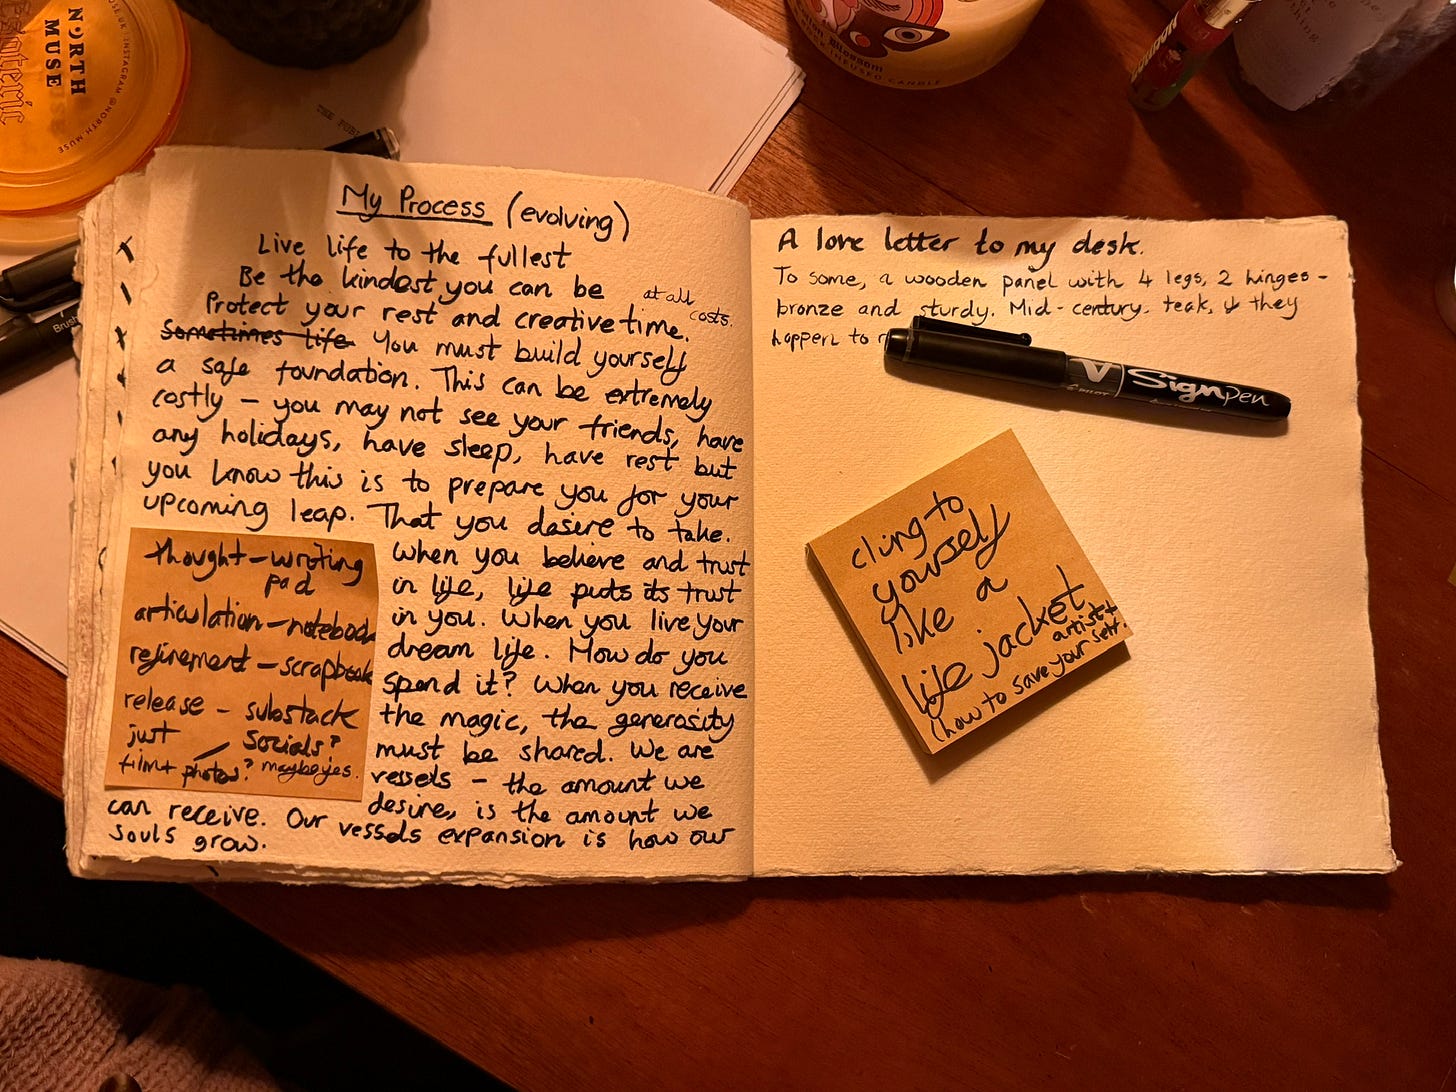 NORTH
MUSE
INSTAGRAM @NORTH MUSE
THE PUBL
Blossom
INFUSED CANDLE
Brush
My Process (evolving)
Live life to the fullest
Be the kindest you can be
at all
costs.
Protect your rest and creative time.
Sometimes life You must build yourself
a safe foundation. This can be extremely
costly – you may not see your friends, have
any holidays, have sleep, have rest but
you know this is to prepare you for your
upcoming leap. That you desire to take.
When you believe and trust
in life, life puts its trust
in you. When you live your
dream life. How do you
spend it? When you receive
the magic, the generosity
must be shared. We are
vessels – the amount we
desire, is the amount we
can receive. Our vessels expansion is how our
souls grow.
thought – writing
pad
articulation – notebook
refinement – scrapbook
release – substack
just socials?
film + photos? maybe yes.
A love letter to my desk.
To some, a wooden panel with 4 legs, 2 hinges –
bronze and sturdy. Mid-century. teak, they
happen to
V Signpen
PILOT
cling to
yourself
like a
life jacket
artist
(how to save your self.